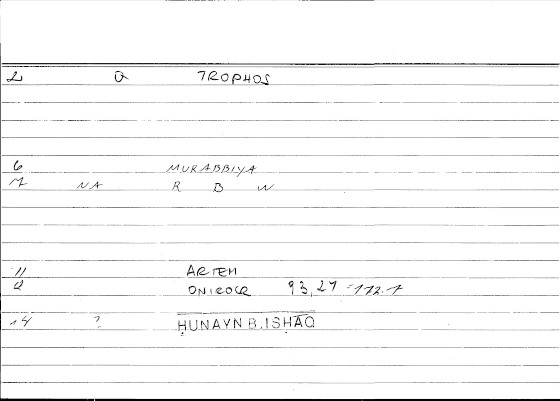 2 a TROPHOS
6 MURABBIYA
M NA R B W
11 ARTEM
Q ONIROCR 93,27 = 172.7
14 ? ḤUNAYN B. ISḤĀQ